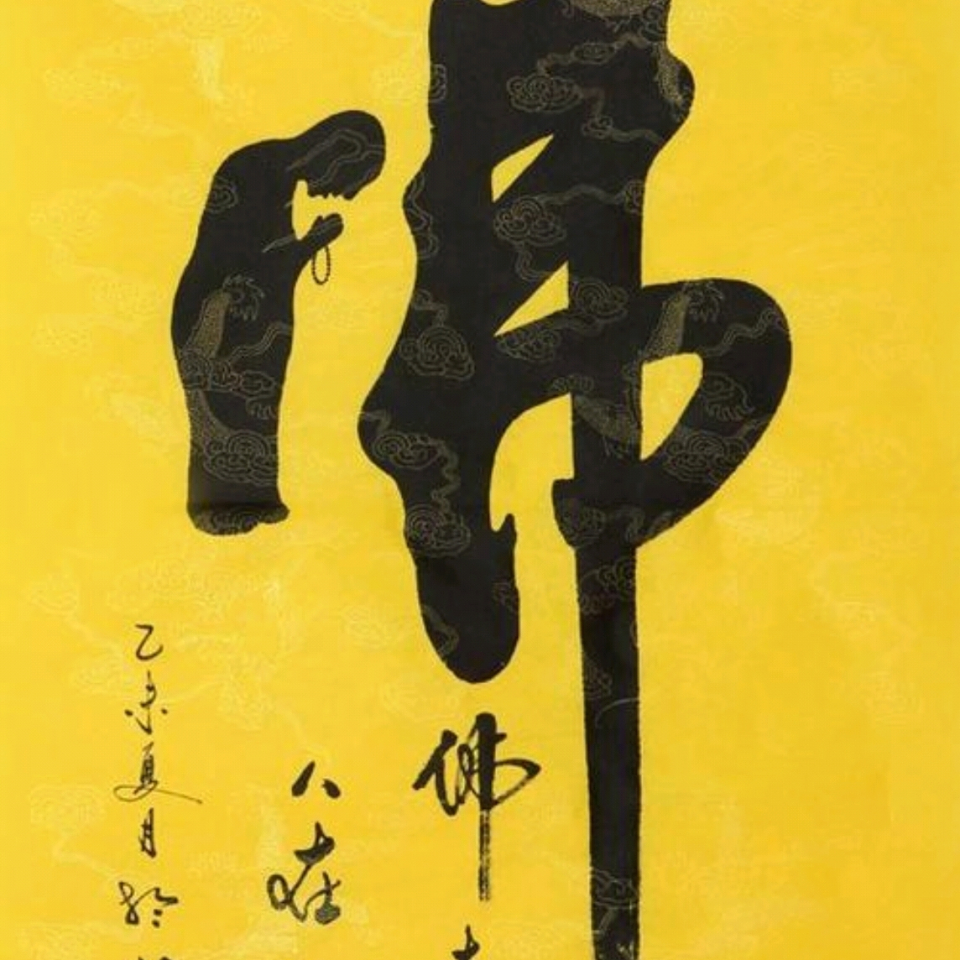 佛
佛
人在
乙未夏月於